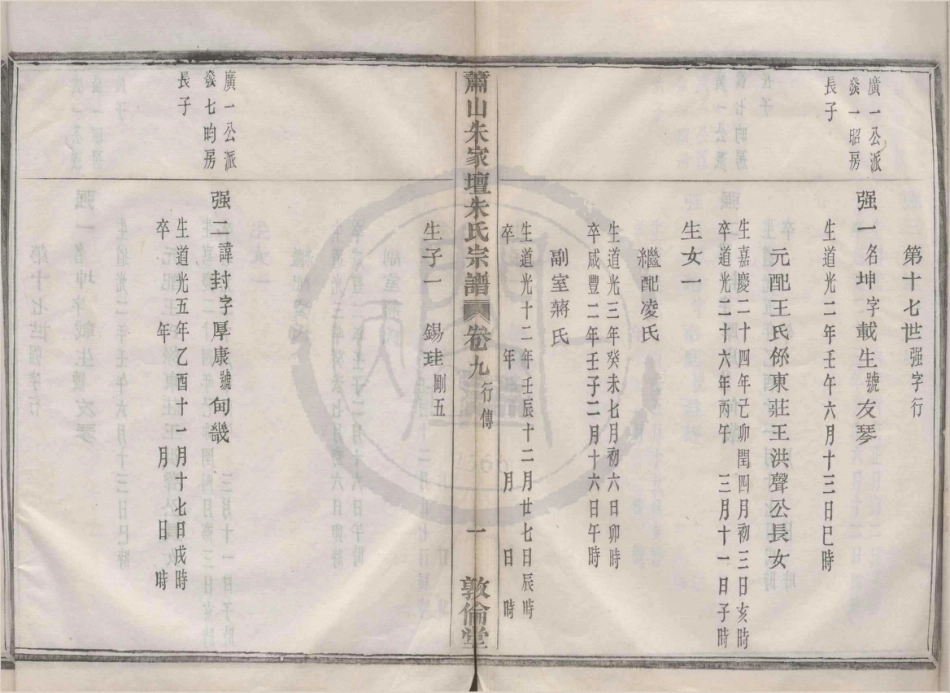 第十七世强字行
廣一公派
發一昭房
長子
强一名坤字載生號友琴
生道光二年壬午六月十三日巳時
元配王氏係東莊王洪聲公長女
生嘉慶二十四年己卯閏四月初三日亥時
卒道光二十六年丙午 三月十一日子時
生女一
繼配凌氏
生道光三年癸未七月初六日卯時
卒咸豐二年壬子二月十六日午時
副室蔣氏
生道光十二年壬辰十二月廿七日辰時
卒 年 月 日 時
蕭山朱家壇朱氏宗譜 卷九 行傳 一 敦倫堂
生子一 錫珪剛五
廣一公派
發七昀房
長子
强二諱封字厚康號甸畿
生道光五年乙酉十一月十七日戌時
卒 年 月 日 時